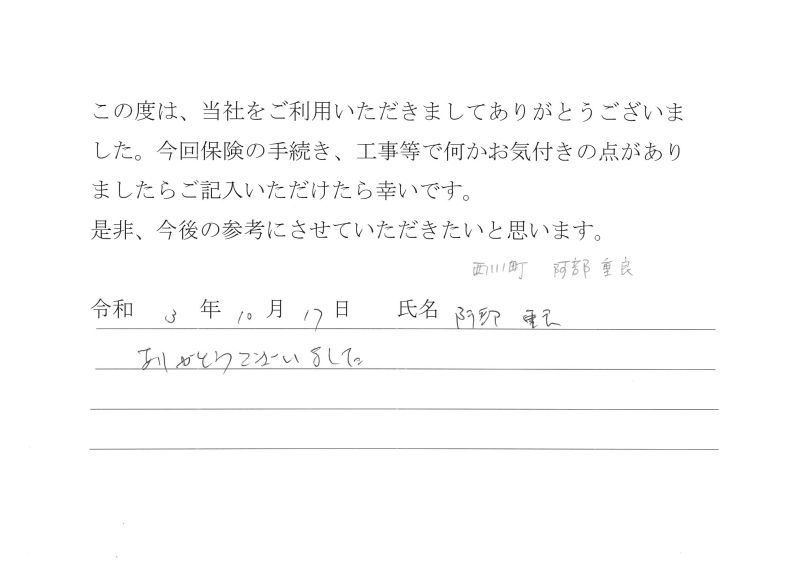 この度は、当社をご利用いただきましてありがとうございま
した。今回保険の手続き、工事等で何かお気付きの点があり
ましたらご記入いただけたら幸いです。
是非、今後の参考にさせていただきたいと思います。
西川町 阿部 重良
令和 3 年 10 月 17 日 氏名 阿部 重良
ありがとうございました